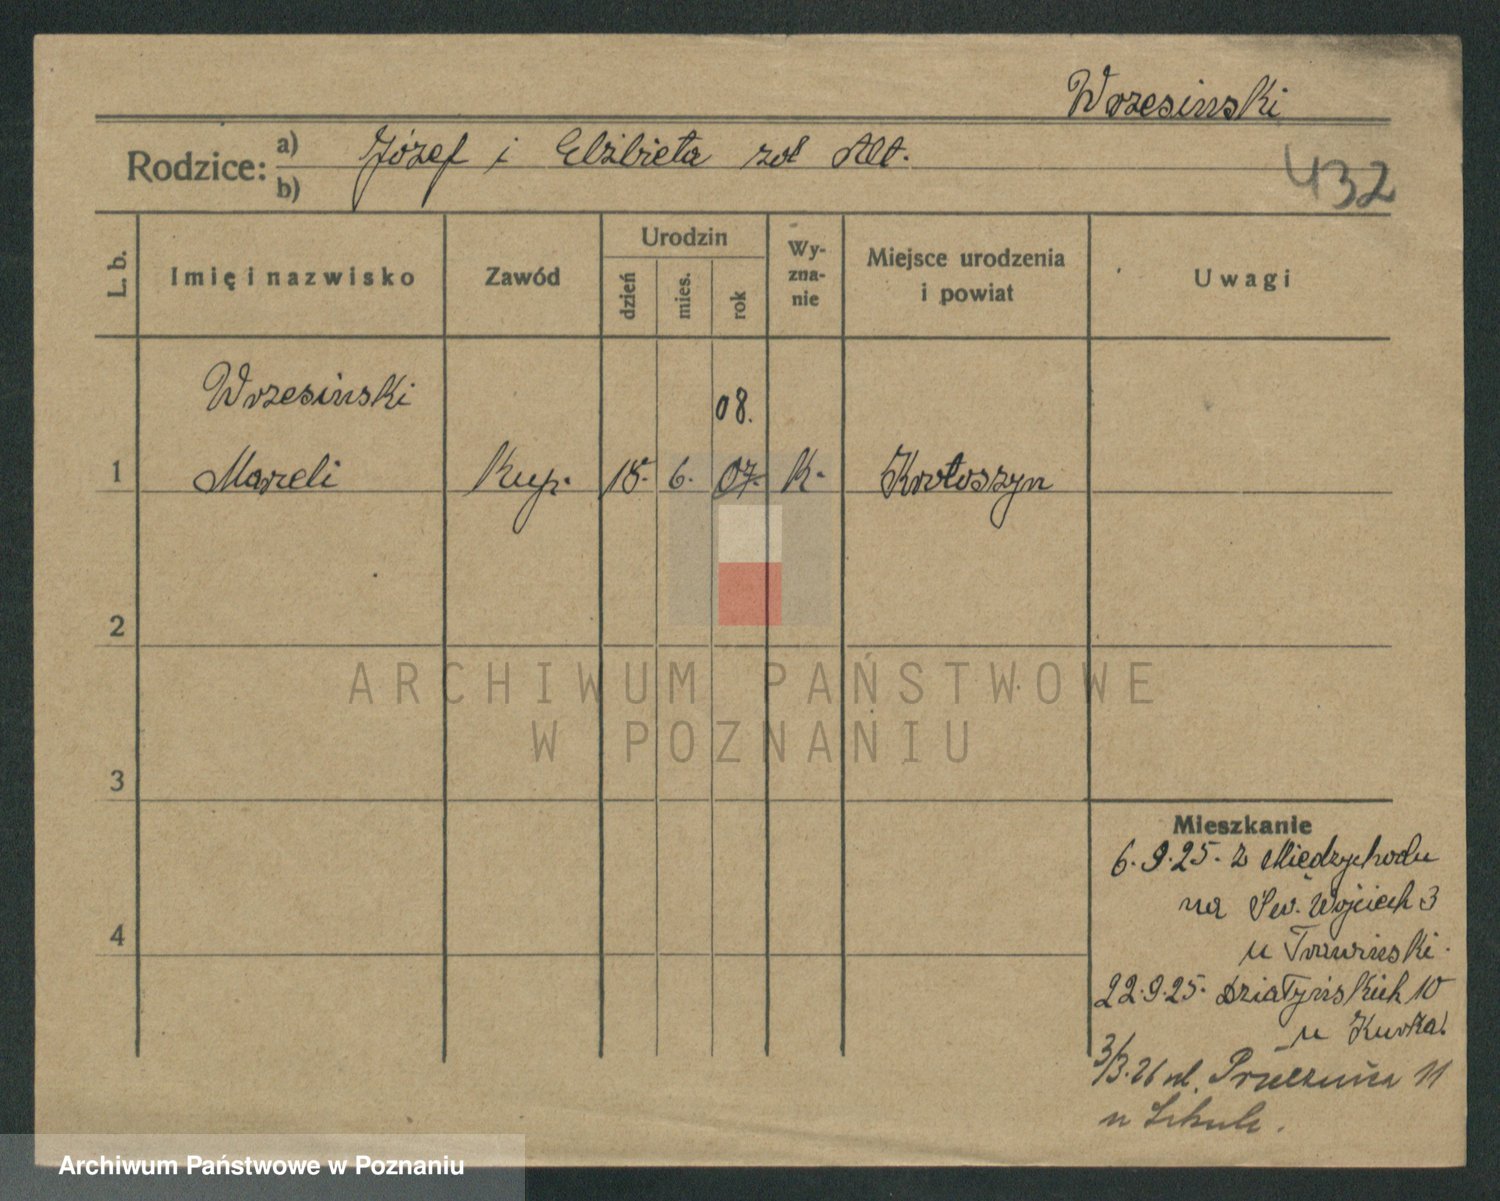 Wrzesinski
Rodzice: a) Józef i Elżbieta
b)
432
L. b.
Imię i nazwisko
Zawód
Urodzin
dzień
mies.
rok
Wy-
zna-
nie
Miejsce urodzenia
i powiat
Uwagi
Wrzesinski
08.
1 Marceli Kup. 15. 6. 07. K. Krotoszyn
2
3
4
Mieszkanie
6.9.25. z Międzychodu
na Św. Wojciech 3
u Trawinski.
22.9.25. Działyńskich 10
u Kurka.
3/3.26 ul. 11
u
ARCHIWUM PAŃSTWOWE
W POZNANIU
Archiwum Państwowe w Poznaniu